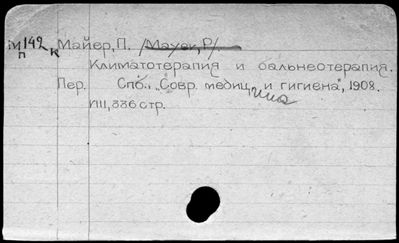 М 142 Майер, П. /Mayer, P/.
п к
Климатотерапия и бальнеотерапия.
Пер. Спб., "Совр. медицина и гигиена", 1908.
VIII, 336 стр.